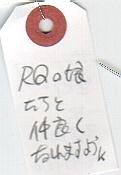 RQの娘
たちと
仲良く
なれますように